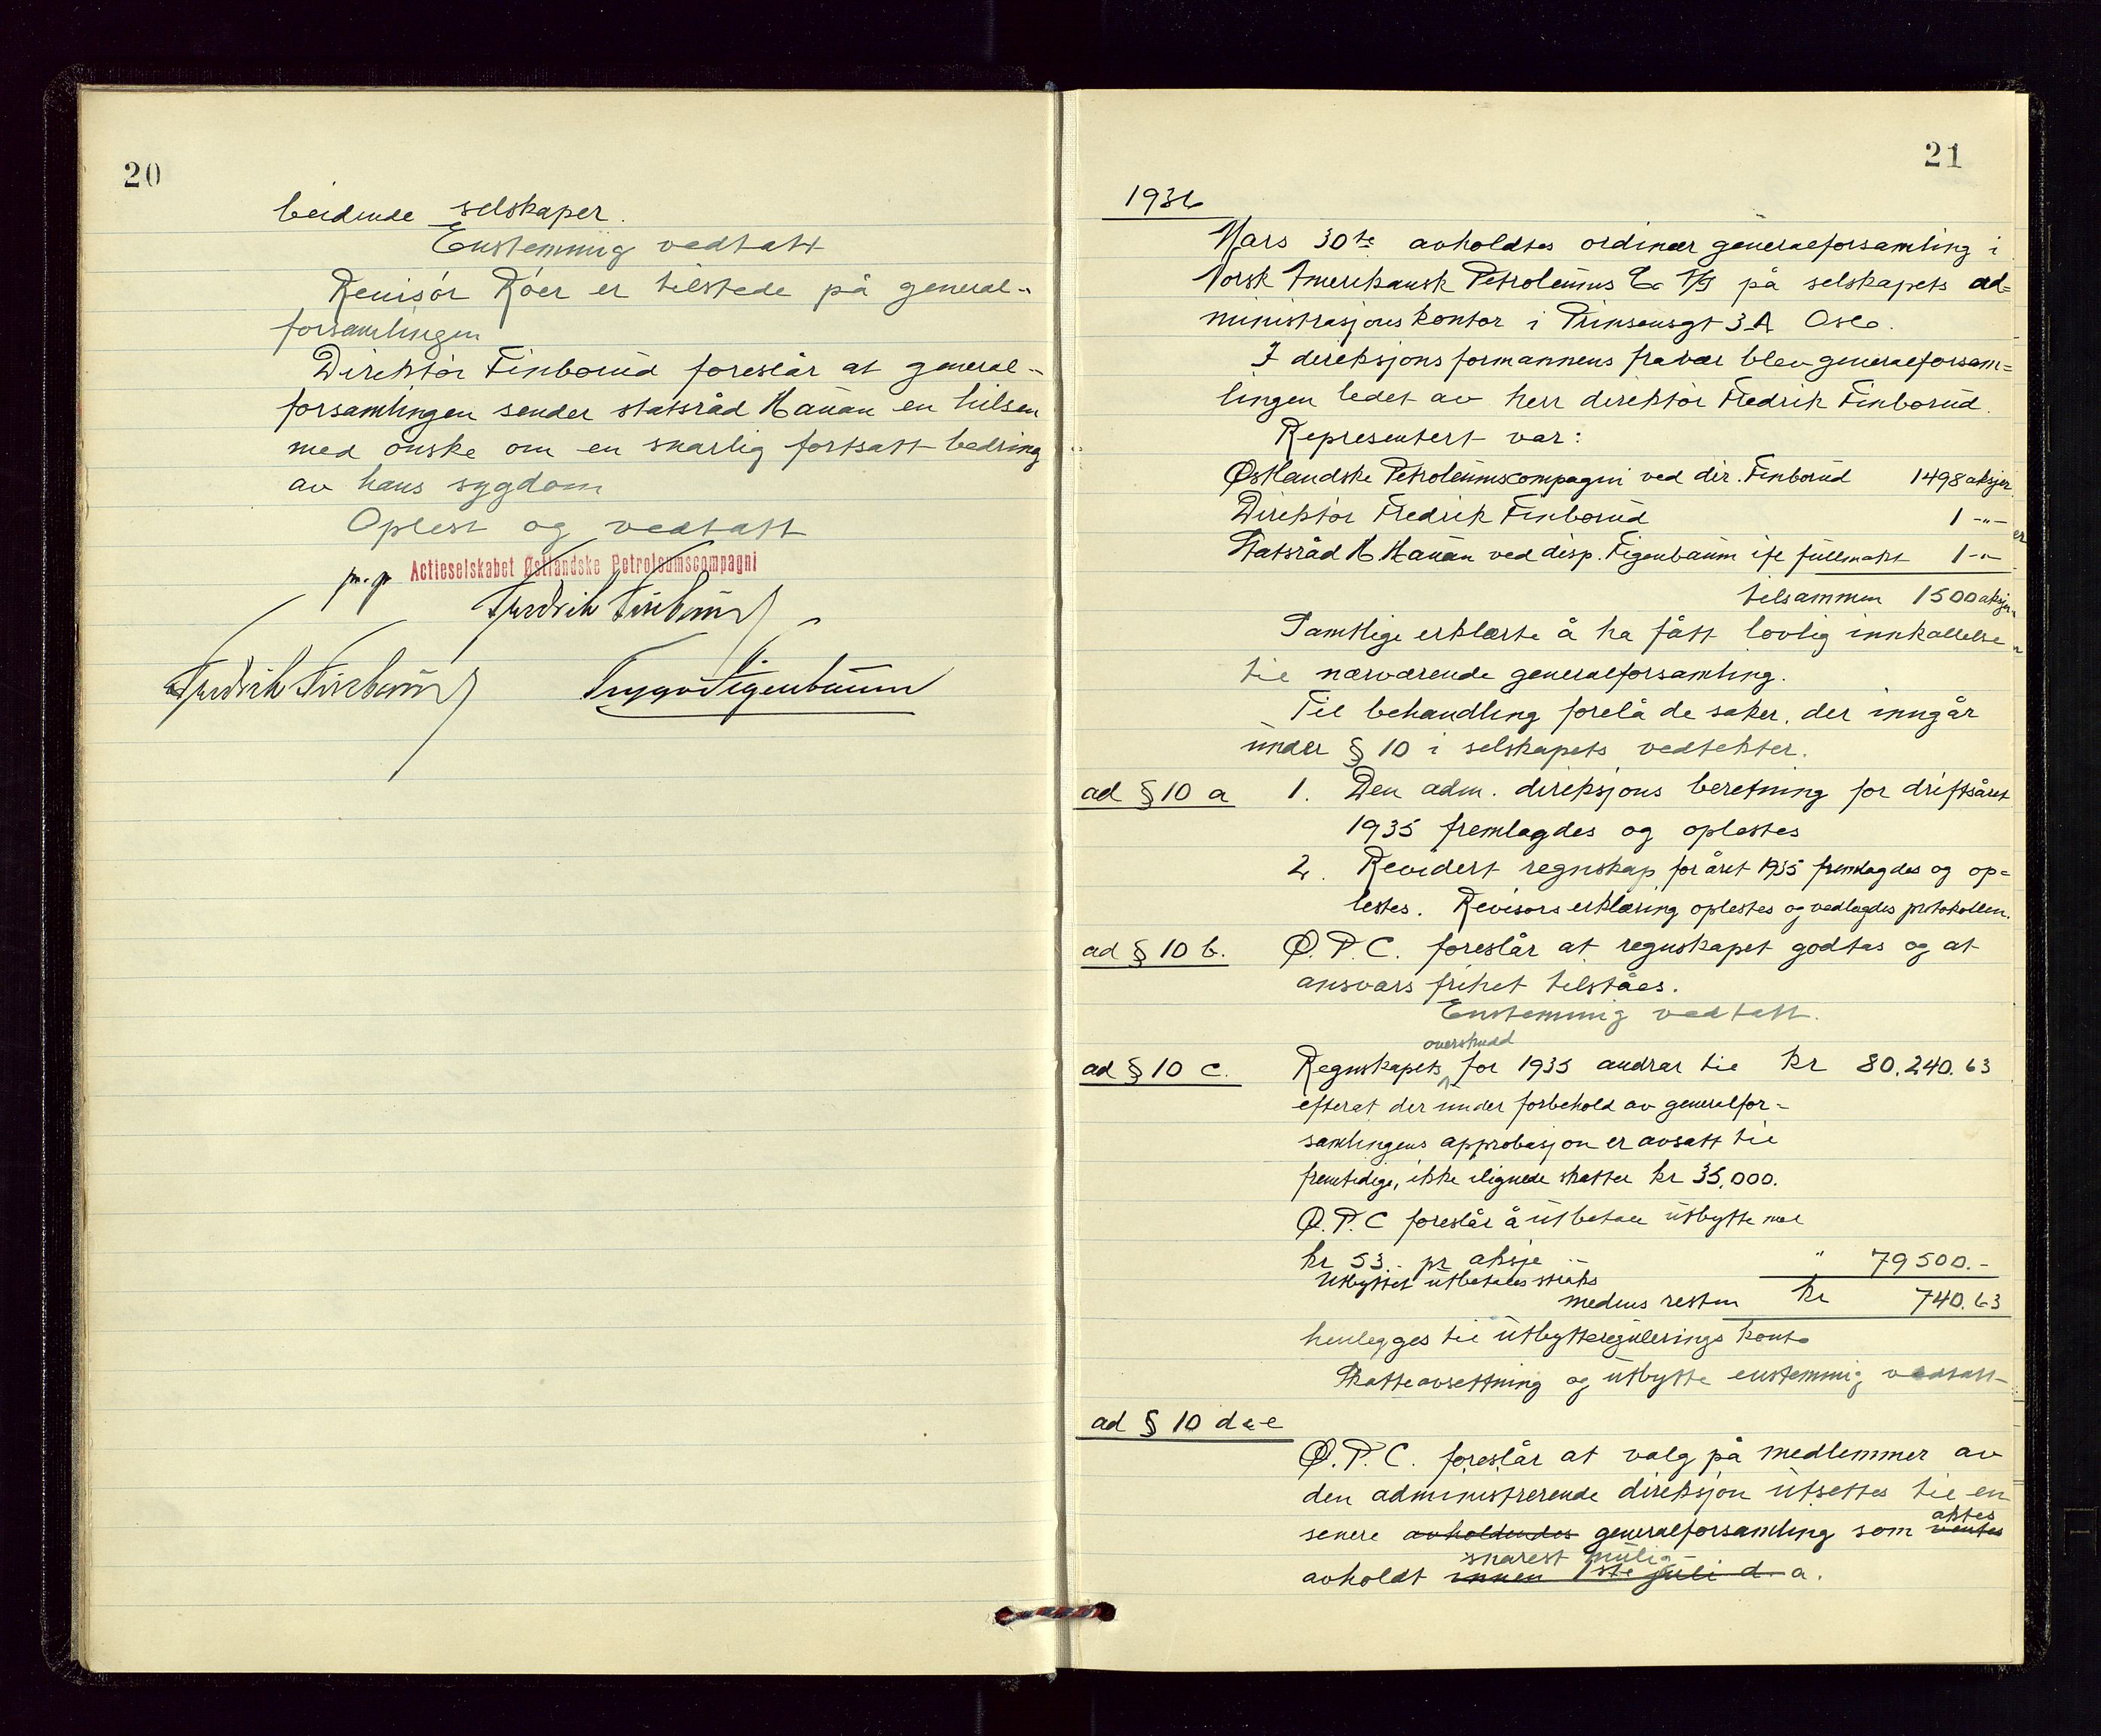 20
beidende selskaper.
Enstemmig vedtatt
Revisor Róer er tilstede på general-
forsamlingen
Direktør Finborud foreslår at general-
forsamlingen sender statsråd Hauan en hilsen
med ønske om en snarlig fortsatt bedring
av hans sygdom
Oplest og vedtatt
pr. pr. Actieselskabet Østlandske Petroleumscompagni
Fredrik Finborud
Fredrik Finborud Trygve Figenbaum
21
1936
Mars 30te avholdtes ordinær generalforsamling i
Norsk Amerikansk Petroleums Co A/S på selskapets ad=
ministrasjonskontor i Prinsensgt 3A Oslo.
I direksjonsformannens fravær blev generalforsam=
lingen ledet av herr direktør Fredrik Finborud.
Representert var:
Østlandske Petroleumscompagni ved dir. Finborud 1498 aksjer
Direktør Fredrik Finborud 1 -"-
Statsråd H Hauan ved disp. Figenbaum ifl fullmakt 1 -"-
tilsammen 1500 aksjer
Samtlige erklærte å ha fått lovlig innkallelse
til nærværende generalforsamling.
Til behandling forelå de saker, der inngår
under § 10 i selskapets vedtekter.
ad § 10 a 1. Den adm. direksjons beretning for driftsåret
1935 fremlagdes og oplestes
2. Revidert regnskap for året 1935 fremlagdes og op=
lestes. Revisors erklæring oplestes og vedlagdes protokollen.
ad § 10 b. Ø.P.C. foreslår at regnskapet godtas og at
ansvarsfrihet tilståes.
Enstemmig vedtatt.
overskudd
ad § 10 c. Regnskapets for 1935 andrar til kr 80.240.63
efterat der under forbehold av generalfor-
samlingens approbasjon er avsatt til
fremtidige, ikke ilignede skatter kr 35,000.
Ø.P.C foreslår å utbetale utbytte med
kr 53.- pr aksje " 79500.-
Utbyttet utbetales straks
medens resten kr 740.63
henlegges til utbyttereguleringskonto
Skatteavsettning og utbytte enstemmig vedtatt
ad § 10 d & e
Ø.P.C. foreslår at valg på medlemmer av
den administrerende direksjon utsettes til en
aktes
senere avholdendes generalforsamling som ventes
snarest mulig
avholdt innen 1ste juli d. a.